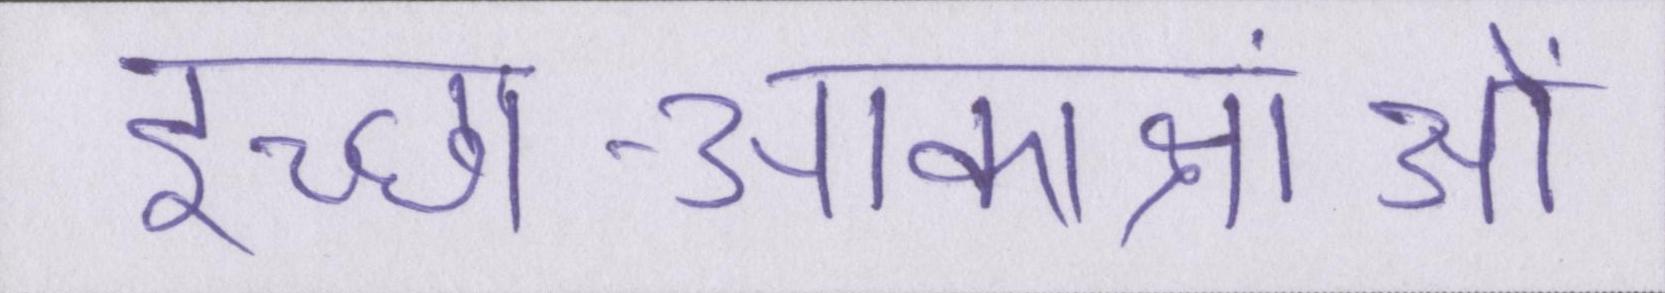 इच्छा-आकाक्षांओं